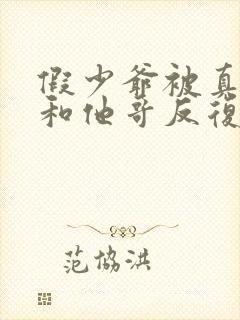 假少爷被真
和他哥反復
范協洪